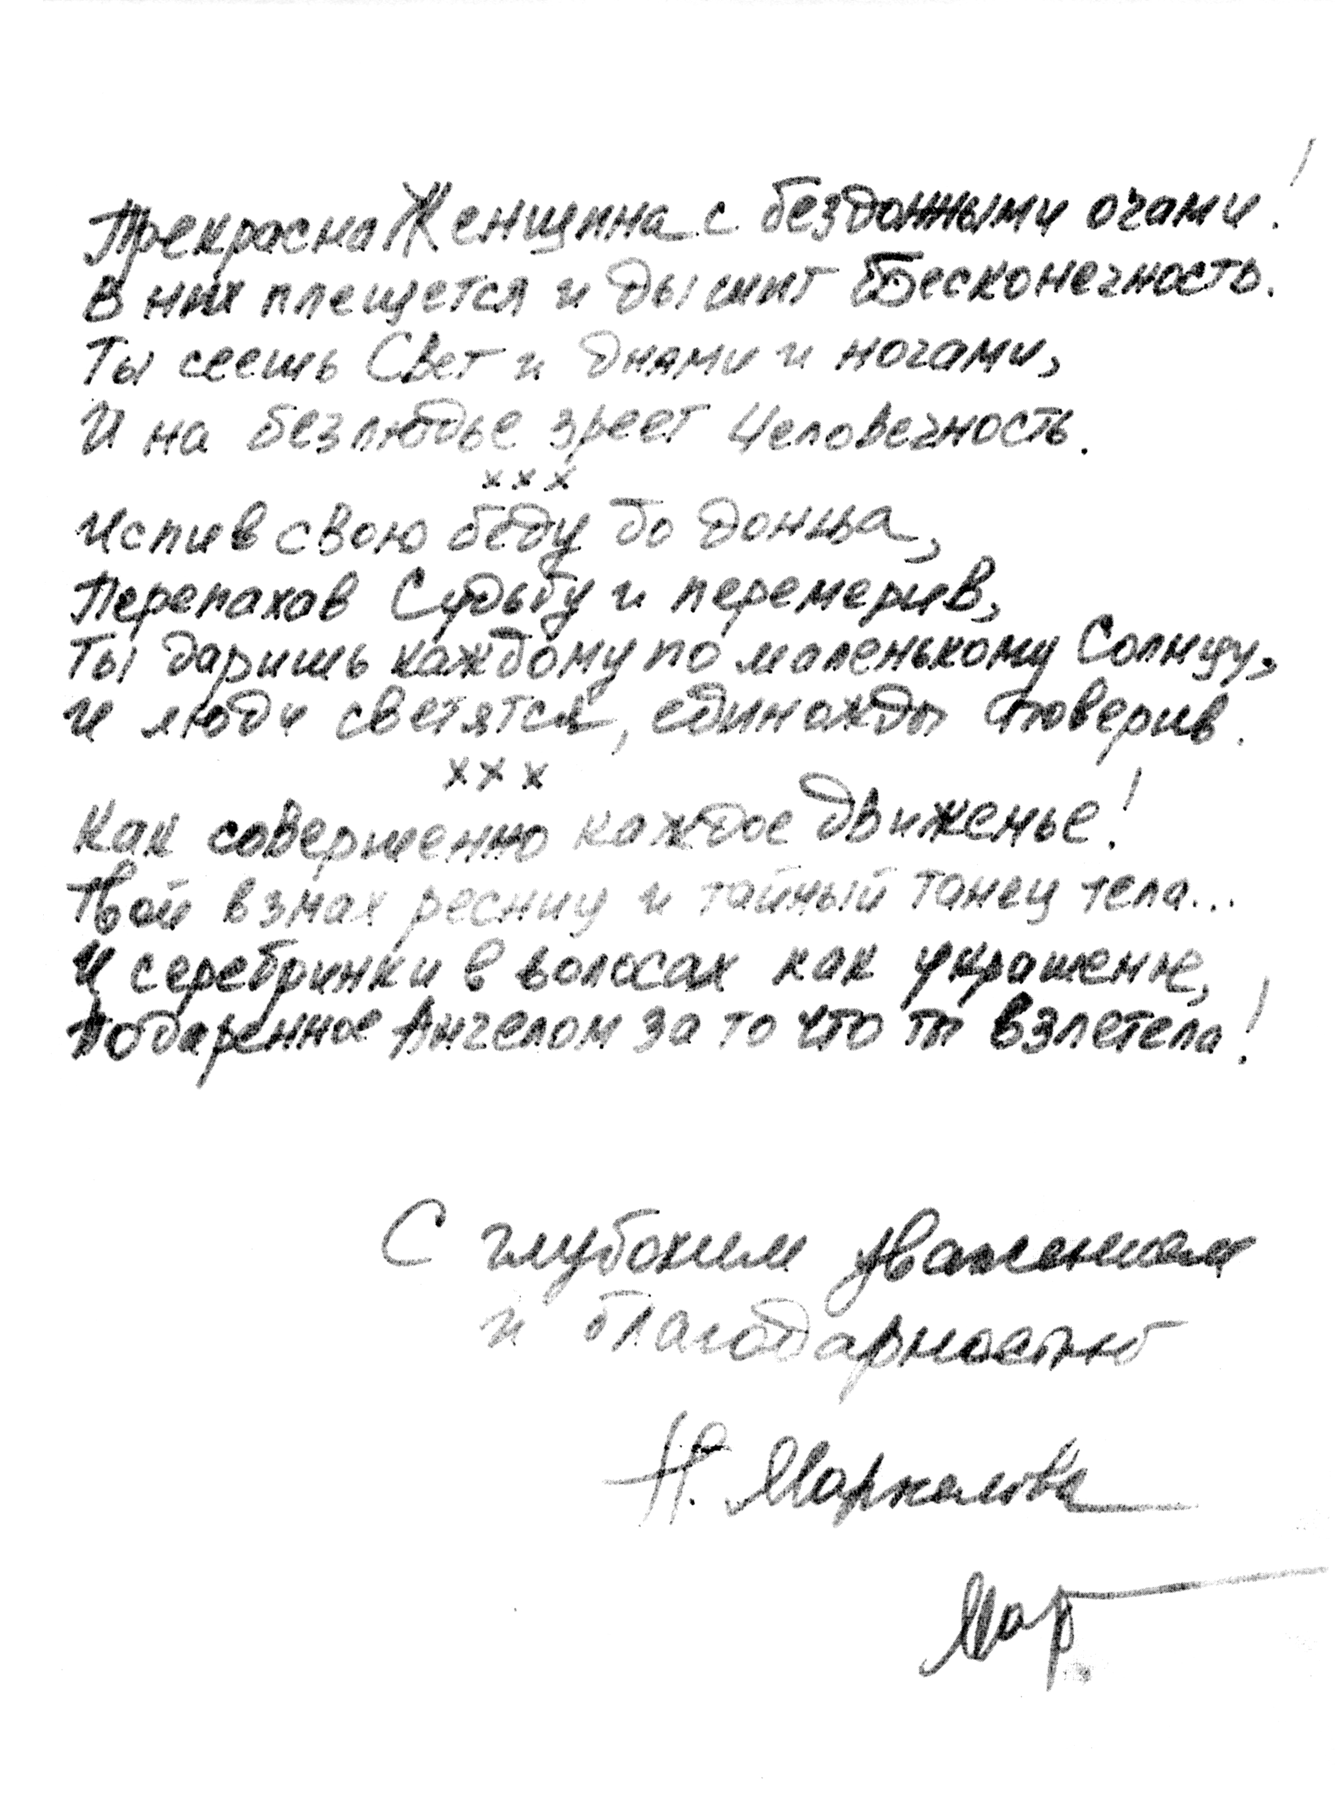 Прекрасна Женщина с бездонными очами!
В них плещется и дышит Бесконечность.
Ты сеешь Свет и днями и ночами,
И на безлюдье зреет Человечность.
х х х
Испив свою беду до донца,
Перепахав Судьбу и перемерив,
Ты даришь каждому по маленькому Солнцу,
И люди светятся, единожды поверив.
х х х
Как совершенно каждое движенье!
Твой взмах ресниц и тайный танец тела...
И серебринки в волосах как украшенье,
Подаренное Ангелом за то что ты взлетела!
С глубоким уважением
и благодарностью
Н.
Мар